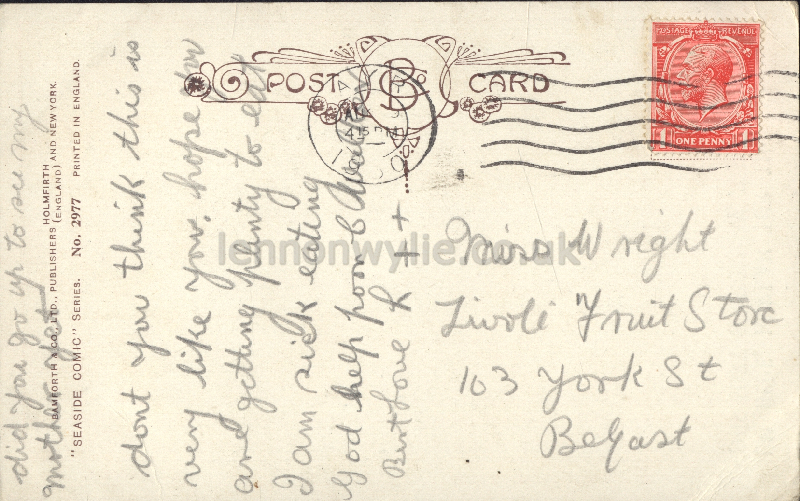 POST CARD
B & Co
4.15 PM
POSTAGE REVENUE
ONE PENNY
BAMFORTH & CO., LTD., PUBLISHERS HOLMFIRTH (ENGLAND) AND NEW YORK.
"SEASIDE COMIC" SERIES. No. 2977 PRINTED IN ENGLAND.
did you go up to see my
mother yet
dont you think this is
very like you. hope you
are getting plenty to eat
I am sick eating
God help poor
Best Love
+ +
Miss Wright
Tivoli Fruit Store
103 York St
Belfast
lennonwylie.co.uk